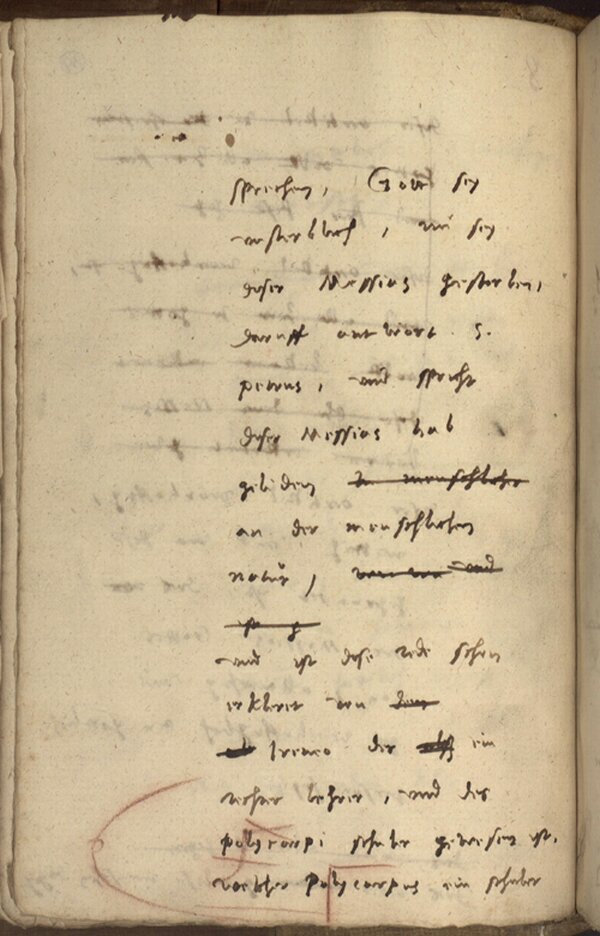 sprechen, Gott sey
unsterblich, nu sey
diser Messias gestorben,
daruff antwort S.
petrus, und spricht
diser Messias hab
geliden in menschlicher
an der menschlichen
natur, und
ist
und ist dise rede schon
erkleret von dem
Ireneo der ein
rechter lehrer, und des
polycarpi schuler gewesen ist,
welcher Polycarpus ein schuler